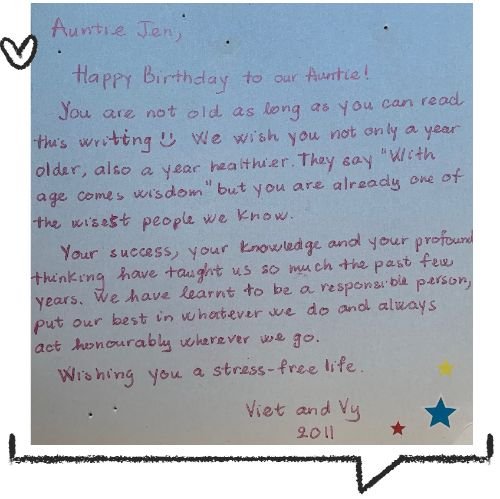 Auntie Jen,
Happy Birthday to our Auntie!
You are not old as long as you can read
this writting We wish you not only a year
older, also a year healthier. They say "With
age comes wisdom" but you are already one of
the wisest people we know.
Your success, your knowledge and your profound
thinking have taught us so much the past few
years. We have learnt to be a responsible person,
put our best in whatever we do and always
act honourably wherever we go.
Wishing you a stress-free life.
Viet and Vy
2011